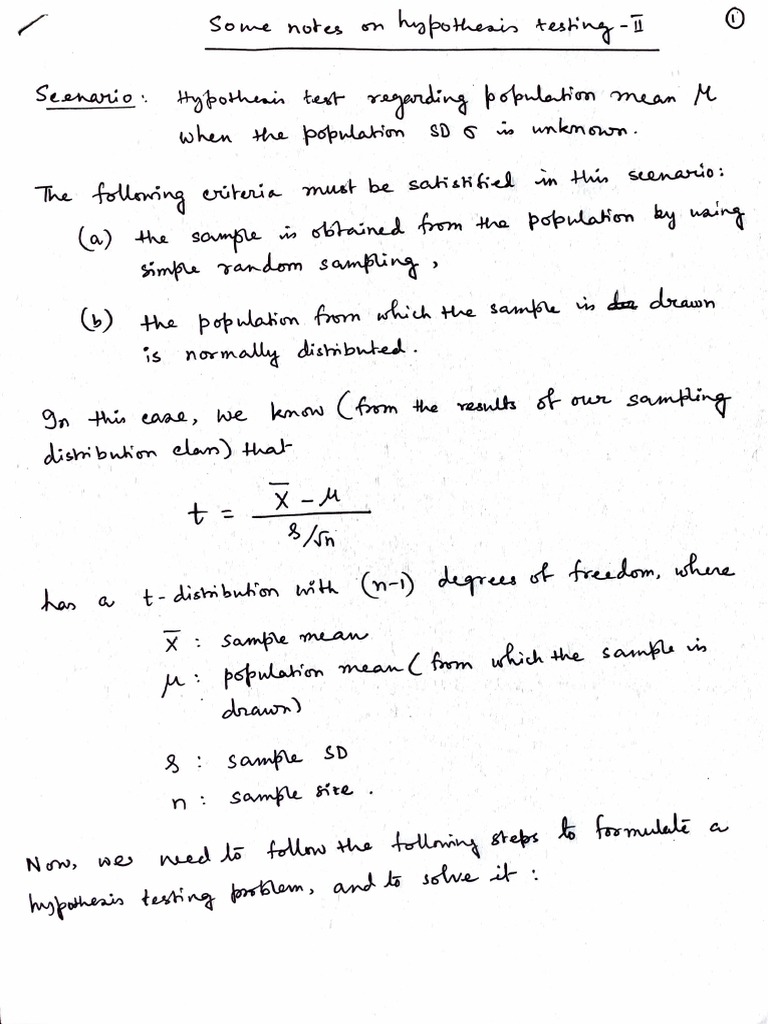 Some notes on hypothesis testing - II
1
Scenario: Hypothesis test regarding population mean μ
when the population SD σ is unknown.
The following criteria must be satistified in this scenario:
(a) the sample is obtained from the population by using
simple random sampling,
(b) the population from which the sample is drawn
is normally distributed.
In this case, we know (from the results of our sampling
distribution class) that
t = (X̄ - μ) / (s/√n)
has a t-distribution with (n-1) degrees of freedom, where
X̄ : sample mean
μ : population mean (from which the sample is
drawn)
s : sample SD
n : sample size.
Now, we need to follow the following steps to formulate a
hypothesis testing problem, and to solve it :